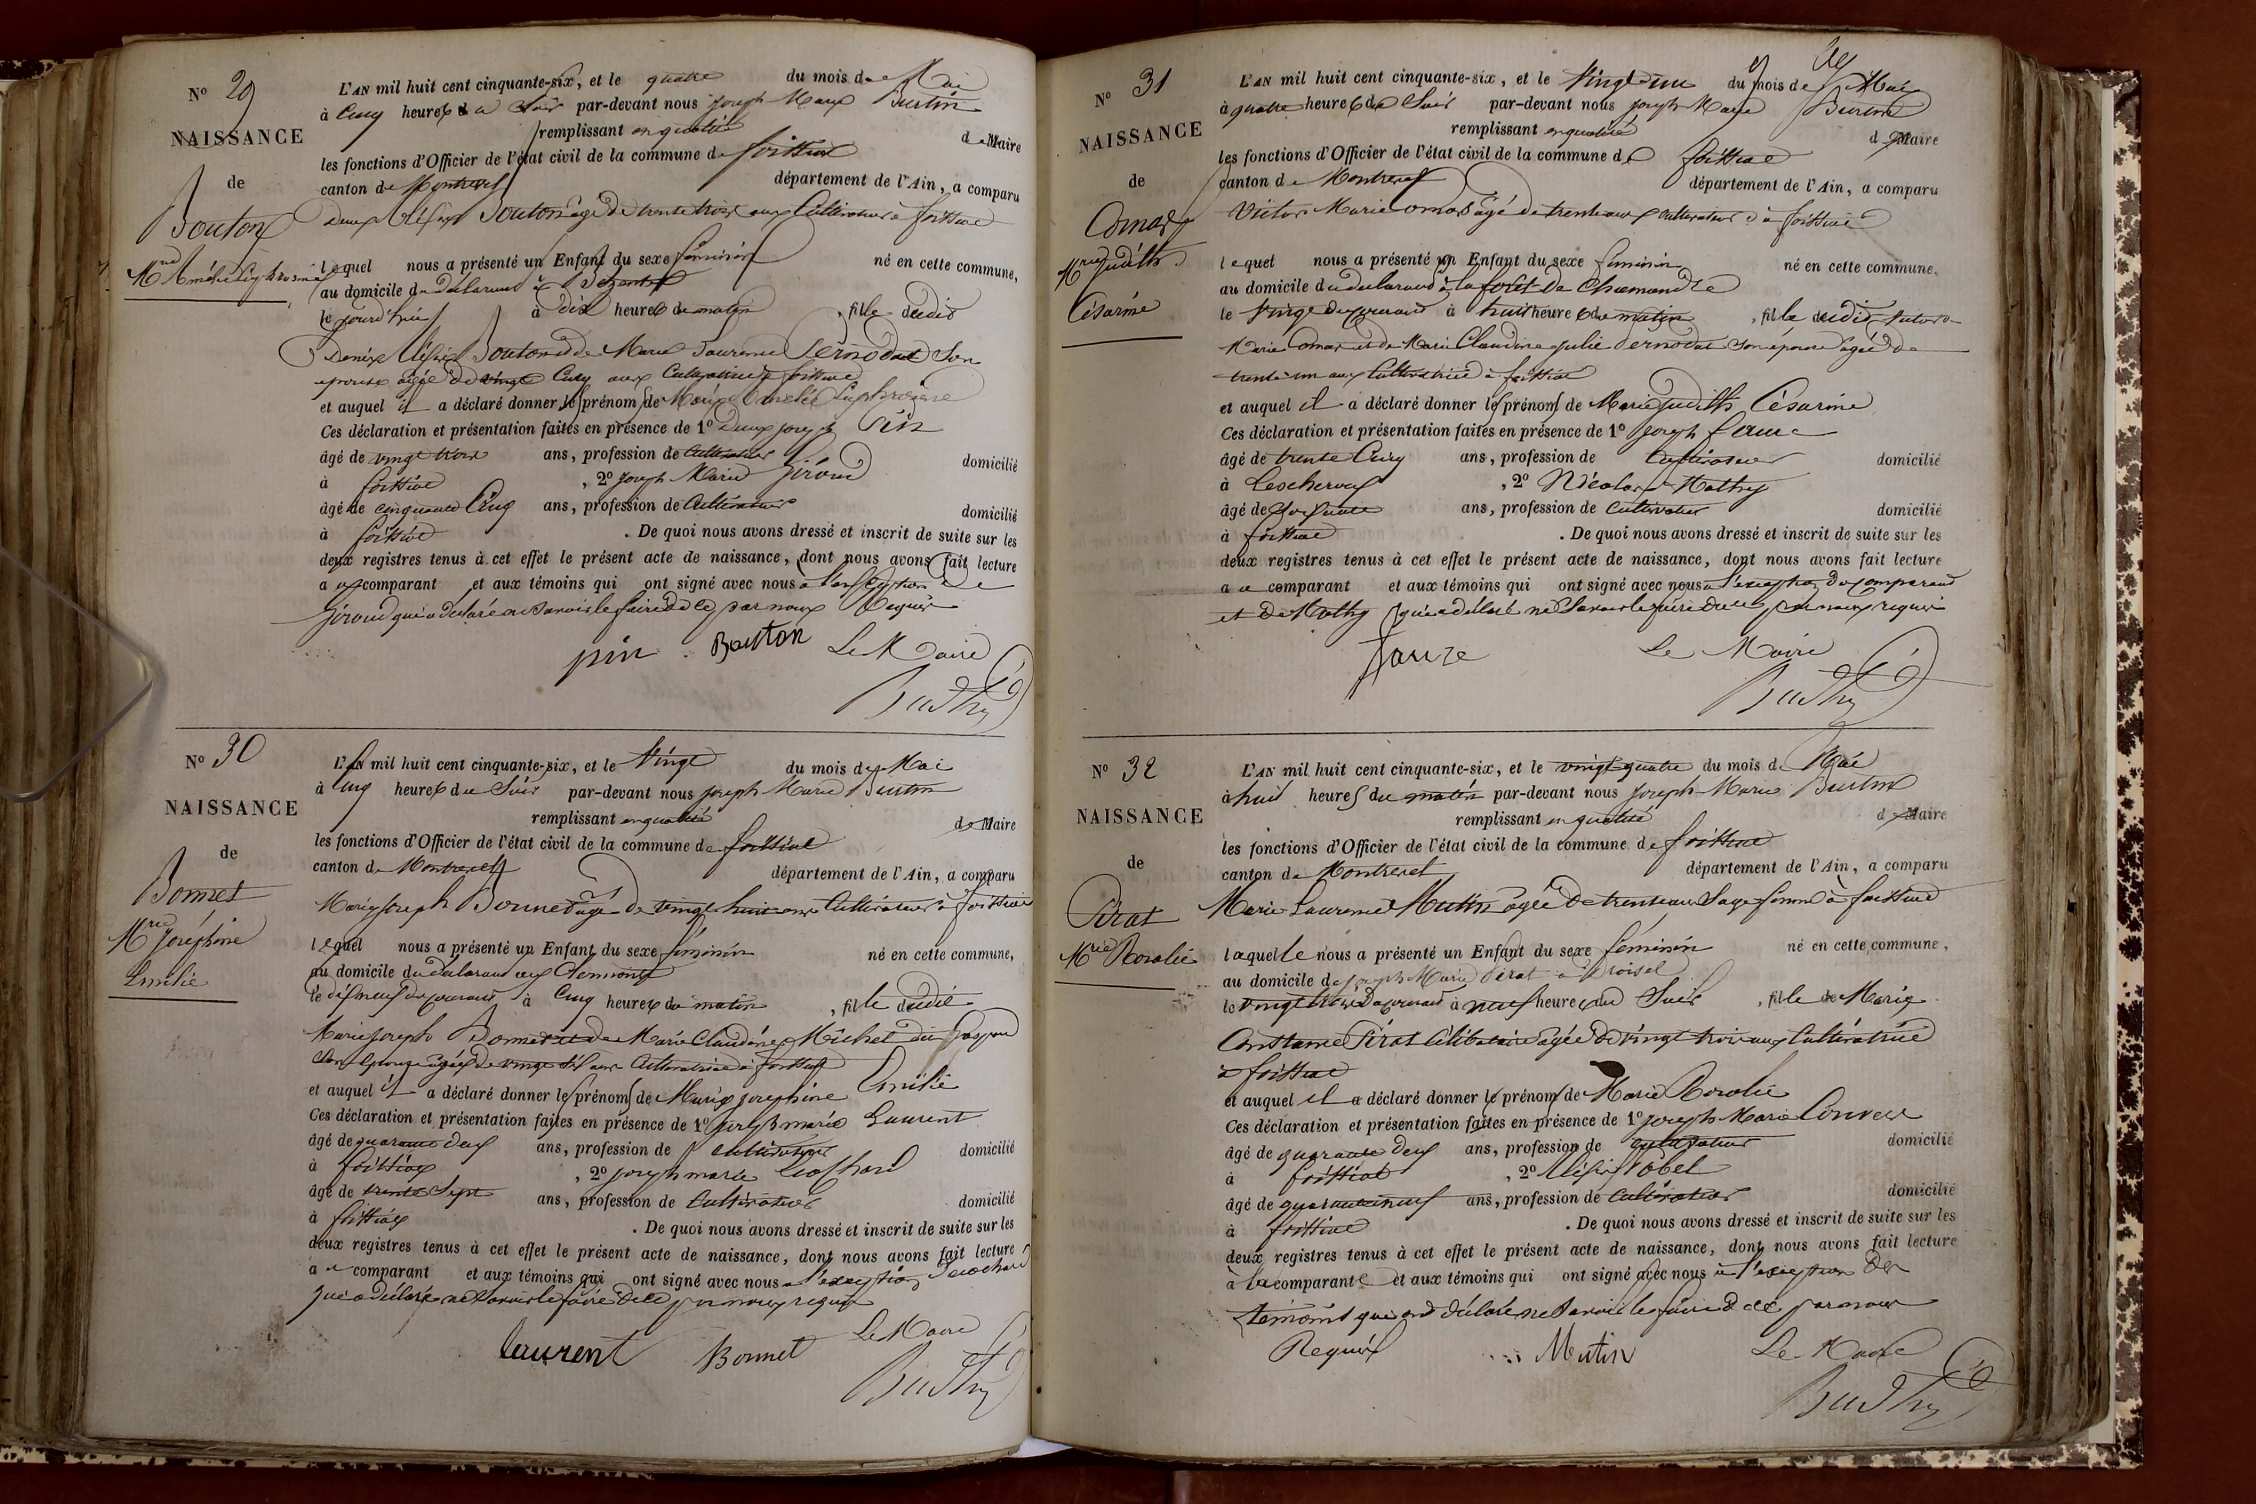 N° 29
NAISSANCE
de
Bouton
M^rie Amélie Euphrosine
L'AN mil huit cent cinquante-six, et le quatre du mois de Mai
à Cinq heures du Soir par-devant nous Joseph Marie Burtin
remplissant en qualité de Maire
les fonctions d'Officier de l'état civil de la commune de foissiat
canton de Montrevel département de l'Ain, a comparu
Bouton âgé de trente trois ans Cultivateur à foissiat
lequel nous a présenté un Enfant du sexe féminin né en cette commune,
au domicile du déclarant à
le jourd'hui à dix heures du matin, fille dudit
Bouton et de Marie Laurence Pernodat Son
épouse agée de vingt Cinq ans Cultivatrice à foissiat
et auquel il a déclaré donner les prénoms de Marie Amélie Euphrosine
Ces déclaration et présentation faites en présence de 1° Joseph Pin
âgé de vingt trois ans, profession de Cultivateur domicilié
à foissiat, 2° Joseph Marie Giroud
âgé de cinquante Cinq ans, profession de Cultivateur domicilié
à foissiat. De quoi nous avons dressé et inscrit de suite sur les
deux registres tenus à cet effet le présent acte de naissance, dont nous avons fait lecture
au comparant et aux témoins qui ont signé avec nous à l'exception de
Giroud qui a déclaré ne Savoir le faire de ce par nous Requis
pin Bouton Le Maire
Burtin
N° 30
NAISSANCE
de
Bonnet
M^rie Joséphine
Emilie
L'AN mil huit cent cinquante-six, et le Vingt du mois de Mai
à Cinq heures du Soir par-devant nous Joseph Marie Burtin
remplissant en qualité de Maire
les fonctions d'Officier de l'état civil de la commune de foissiat
canton de Montrevel département de l'Ain, a comparu
Marie Joseph Bonnet âgé de vingt huit ans Cultivateur à foissiat
lequel nous a présenté un Enfant du sexe féminin né en cette commune,
au domicile du déclarant
le dixneuf du courant à Cinq heures du matin, fille dudit
Marie Joseph Bonnet et de Marie Claudine Michel
Son épouse agée de vingt ans Cultivatrice à foissiat
et auquel il a déclaré donner les prénoms de Marie Joséphine Emilie
Ces déclaration et présentation faites en présence de 1° Joseph marie Laurent
âgé de quarante deux ans, profession de Cultivateur domicilié
à foissiat, 2° Joseph marie
âgé de trente Sept ans, profession de Cultivateur domicilié
à foissiat. De quoi nous avons dressé et inscrit de suite sur les
deux registres tenus à cet effet le présent acte de naissance, dont nous avons fait lecture
au comparant et aux témoins qui ont signé avec nous à l'exception
qui a déclaré ne Savoir le faire de ce par nous requis
laurent Bonnet Le Maire
Burtin
N° 31
NAISSANCE
de
Comas
M^rie Judith
Césarine
L'AN mil huit cent cinquante-six, et le Vingt un du mois de Mai
à quatre heures du Soir par-devant nous Joseph Marie Burtin
remplissant en qualité de Maire
les fonctions d'Officier de l'état civil de la commune de foissiat
canton de Montrevel département de l'Ain, a comparu
Victor Marie Comas âgé de trente ans cultivateur à foissiat
lequel nous a présenté un Enfant du sexe féminin né en cette commune,
au domicile du déclarant à la forêt de Chamandre
le Vingt du courant à huit heures du matin, fille dudit Victor
Marie Comas et de Marie Claudine Julie Pernodat Son épouse agée de
trente un ans Cultivatrice à foissiat
et auquel il a déclaré donner les prénoms de Marie Judith Césarine
Ces déclaration et présentation faites en présence de 1° Joseph
âgé de trente Cinq ans, profession de Cultivateur domicilié
à Lescheroux, 2° Nicolas Mathy
âgé de soixante ans, profession de Cultivateur domicilié
à foissiat. De quoi nous avons dressé et inscrit de suite sur les
deux registres tenus à cet effet le présent acte de naissance, dont nous avons fait lecture
au comparant et aux témoins qui ont signé avec nous à l'exception du comparant
et de Mathy qui a déclaré ne Savoir le faire de ce par nous requis
Le Maire
Burtin
N° 32
NAISSANCE
de
Pirat
M^rie Rosalie
L'AN mil huit cent cinquante-six, et le vingt quatre du mois de Mai
à huit heures du matin par-devant nous Joseph Marie Burtin
remplissant en qualité de Maire
les fonctions d'Officier de l'état civil de la commune de foissiat
canton de Montrevel département de l'Ain, a comparu
Marie Laurence Mutin agée de trente ans Sage femme à foissiat
laquelle nous a présenté un Enfant du sexe féminin né en cette commune,
au domicile de Joseph Marie Pirat à
le vingt trois du courant à neuf heures du Soir, fille de Marie
Constance Pirat Célibataire agée de vingt trois ans Cultivatrice
à foissiat
et auquel il a déclaré donner les prénoms de Marie Rosalie
Ces déclaration et présentation faites en présence de 1° Joseph Marie Convert
âgé de quarante deux ans, profession de cultivateur domicilié
à foissiat, 2°
âgé de quarante neuf ans, profession de Cultivateur domicilié
à foissiat. De quoi nous avons dressé et inscrit de suite sur les
deux registres tenus à cet effet le présent acte de naissance, dont nous avons fait lecture
à la comparante et aux témoins qui ont signé avec nous à l'exception des
témoins qui ont déclaré ne Savoir le faire de ce par nous
Requis Mutin Le Maire
Burtin